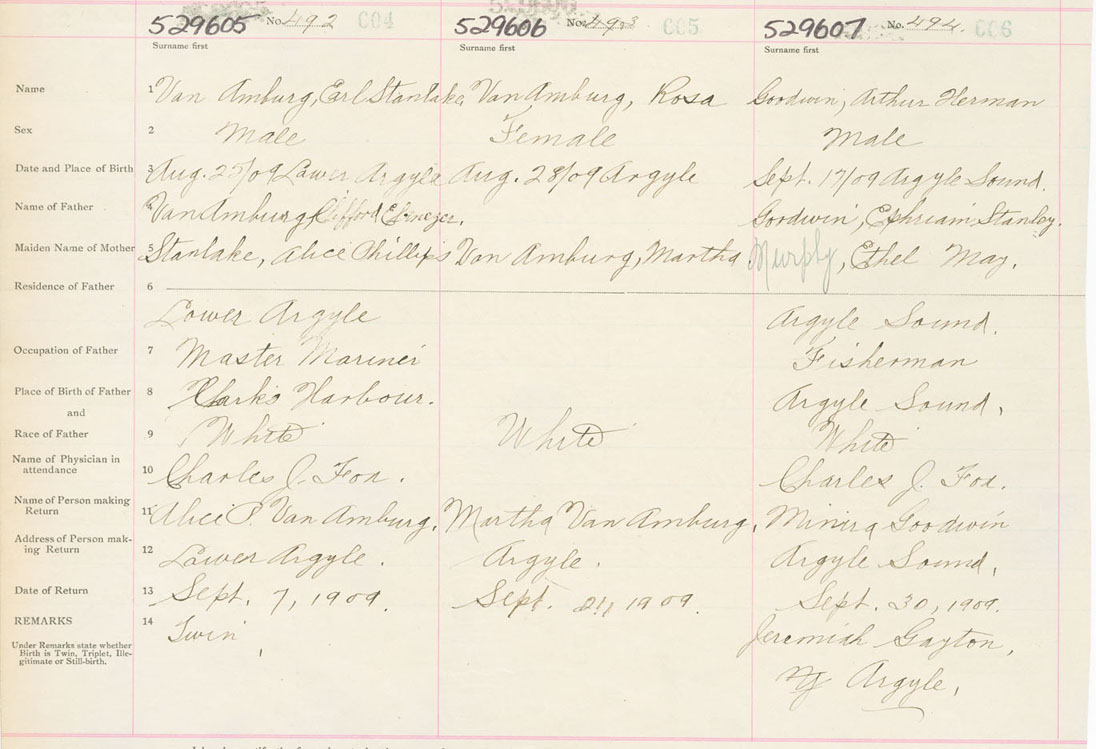 529605 No. 492 C04
529606 No. 493 C05
529607 No. 494. C06
Surname first Surname first Surname first
Name 1 Van Amburg, Earl Stanlake Van Amburg, Rosa Goodwin, Arthur Herman
Sex 2 Male Female Male
Date and Place of Birth 3 Aug. 25/09 Lower Argyle Aug. 28/09 Argyle Sept. 17/09 Argyle Sound.
Name of Father 4 Van Amburg, Clifford Ebenezer. Goodwin, Ephriam Stanley.
Maiden Name of Mother 5 Stanlake, Alice Phillips Van Amburg, Martha Murphy, Ethel May.
Residence of Father 6
Lower Argyle Argyle Sound.
Occupation of Father 7 Master Mariner Fisherman
Place of Birth of Father 8 Clark's Harbour. Argyle Sound,
and
Race of Father 9 White White White
Name of Physician in
attendance 10 Charles J. Fox. Charles J. Fox.
Name of Person making
Return 11 Alice P. Van Amburg. Martha Van Amburg, Goodwin
Address of Person mak-
ing Return 12 Lower Argyle. Argyle. Argyle Sound,
Date of Return 13 Sept. 7, 1909. Sept. 1909. Sept. 30, 1909.
REMARKS 14 Twin Jeremiah Gayton,
Under Remarks state whether
Birth is Twin, Triplet, Ille-
gitimate or Still-birth.
Argyle,